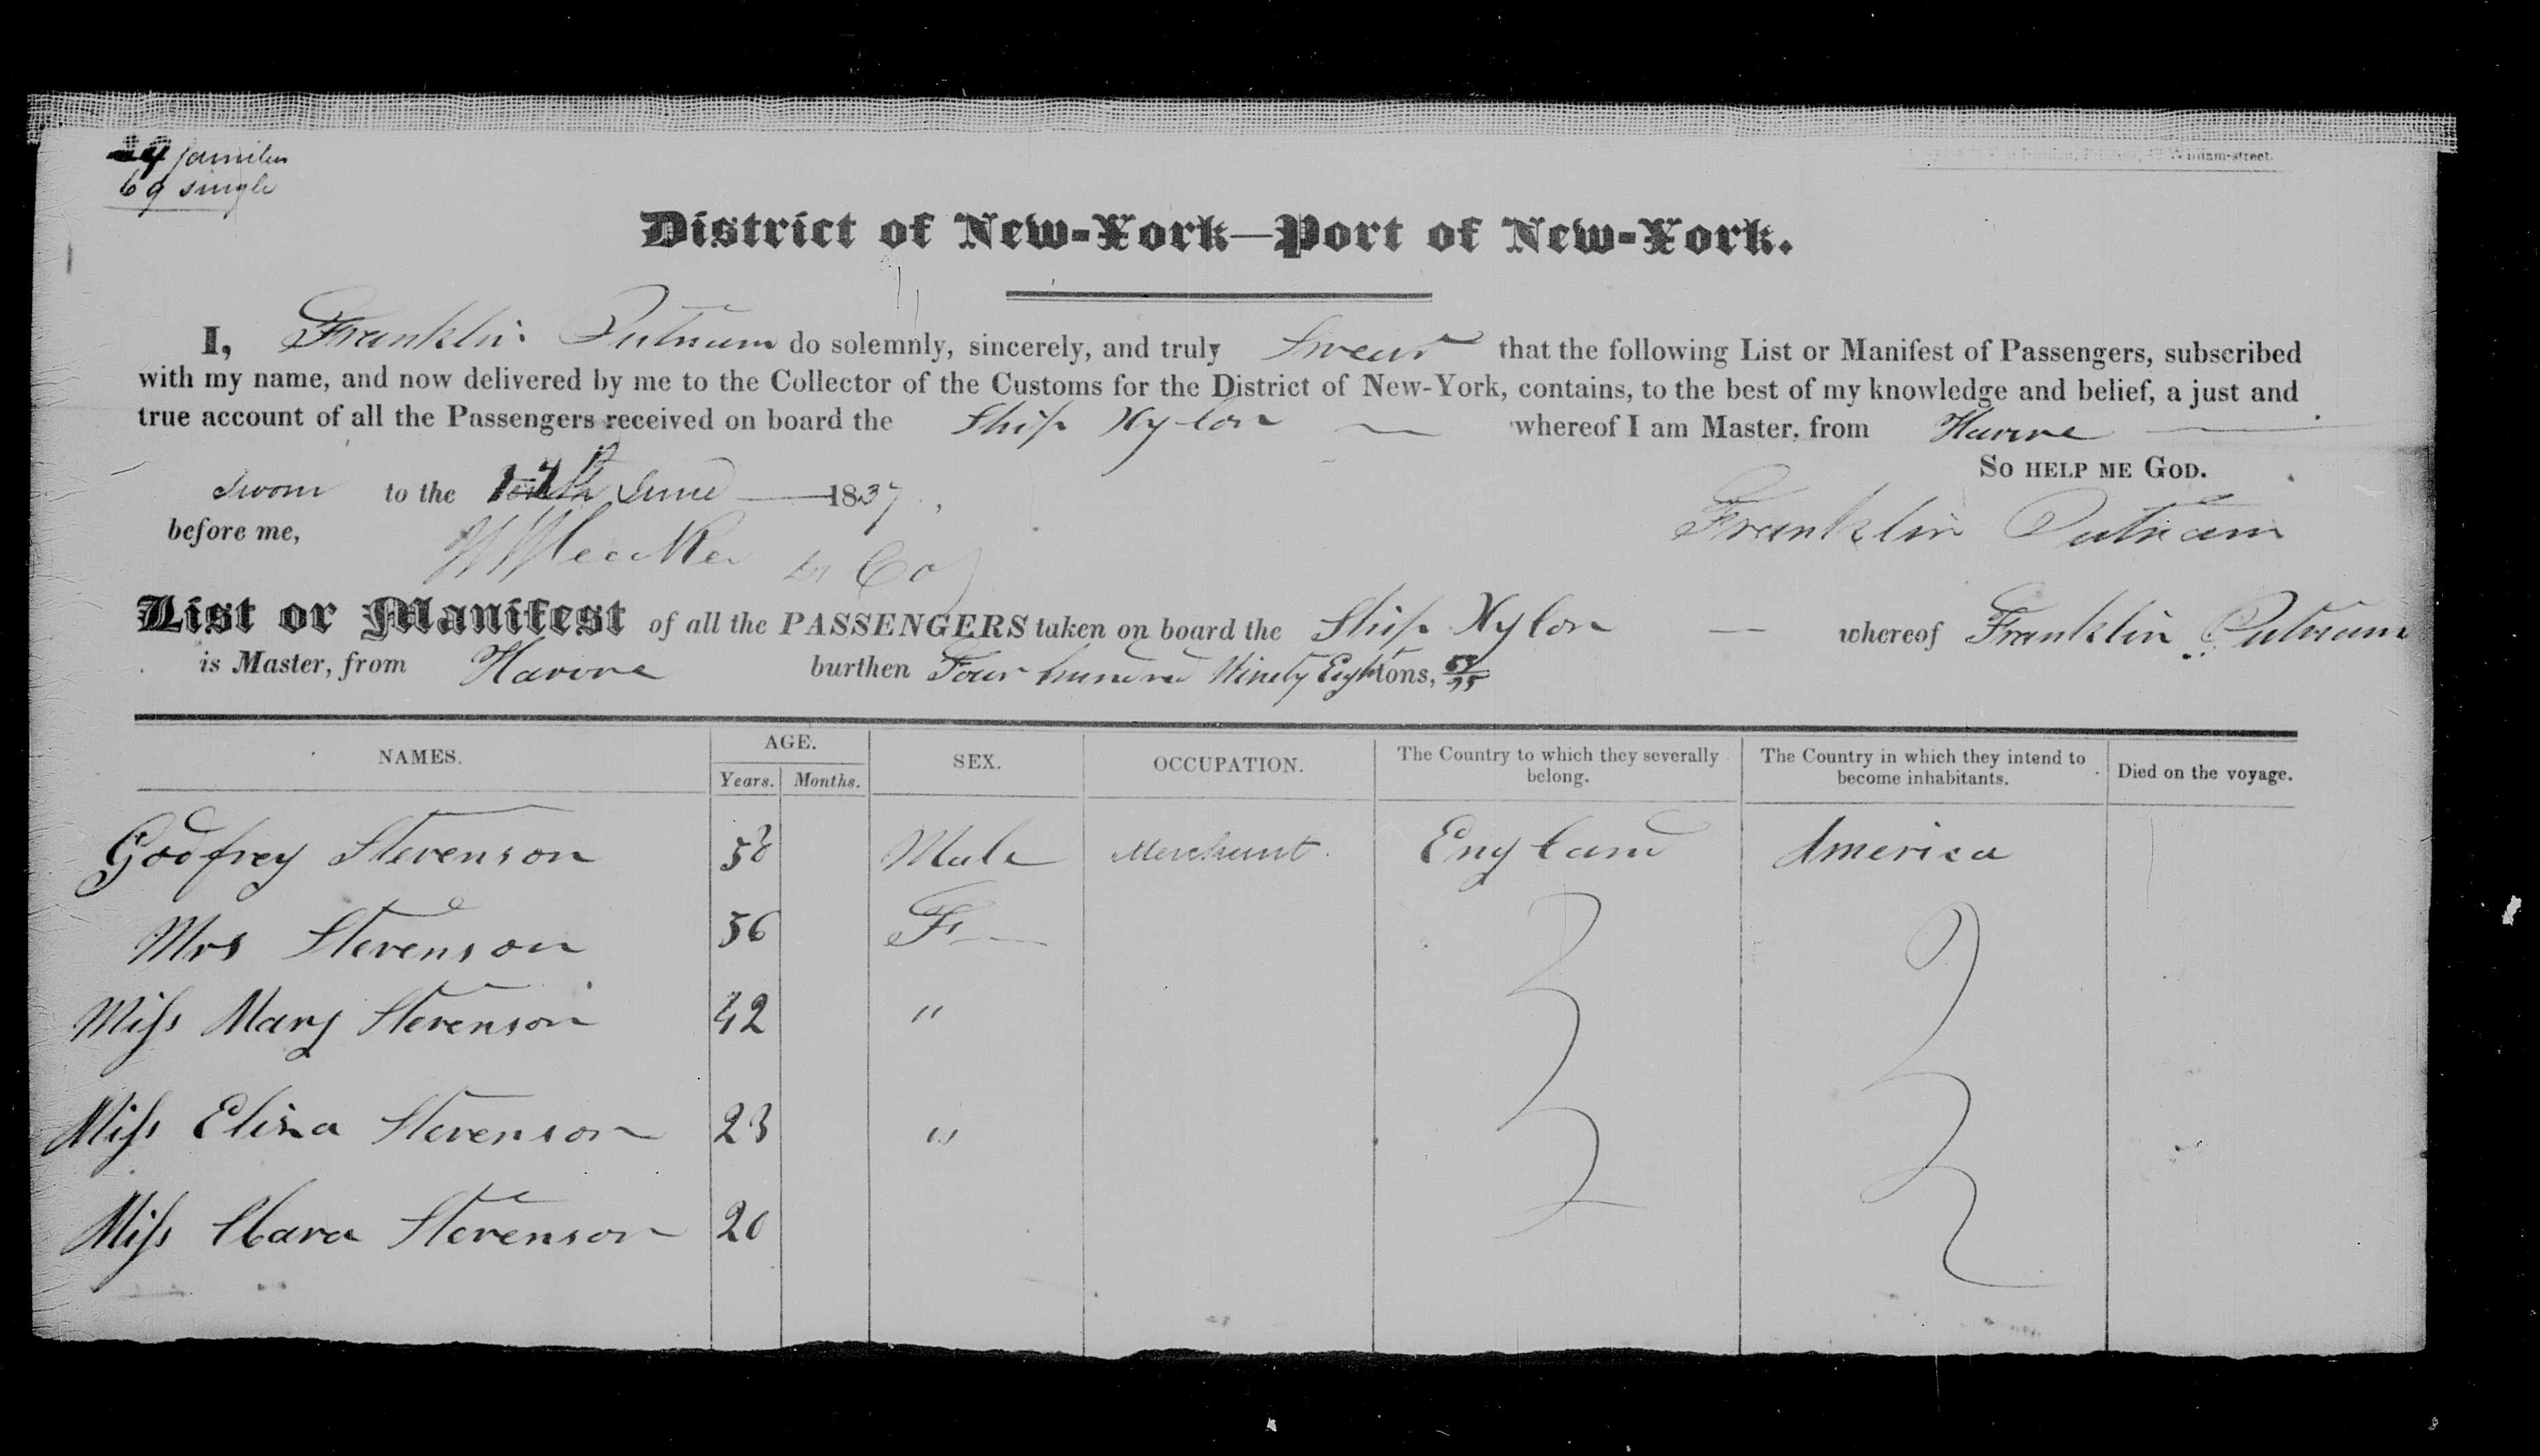 4 families
69 single
William-street.
District of New-York—Port of New-York.
I, Franklin Putnam do solemnly, sincerely, and truly Swear that the following List or Manifest of Passengers, subscribed
with my name, and now delivered by me to the Collector of the Customs for the District of New-York, contains, to the best of my knowledge and belief, a just and
true account of all the Passengers received on board the Ship Xylon — whereof I am Master, from Havre —
SO HELP ME GOD.
Sworn to the June — 1837
before me,
Franklin Putnam
List or Manifest of all the PASSENGERS taken on board the Ship Xylon — whereof Franklin Putnam
is Master, from Havre burthen Four hundred Ninety Eight tons,
NAMES. AGE. SEX. OCCUPATION. The Country to which they severally belong. The Country in which they intend to become inhabitants. Died on the voyage.
Years. Months.
Godfrey Stevenson 58 Male Merchant. England America
Mrs Stevenson 56 F—
Miss Mary Stevenson 42 "
Miss Eliza Stevenson 23 "
Miss Clara Stevenson 20